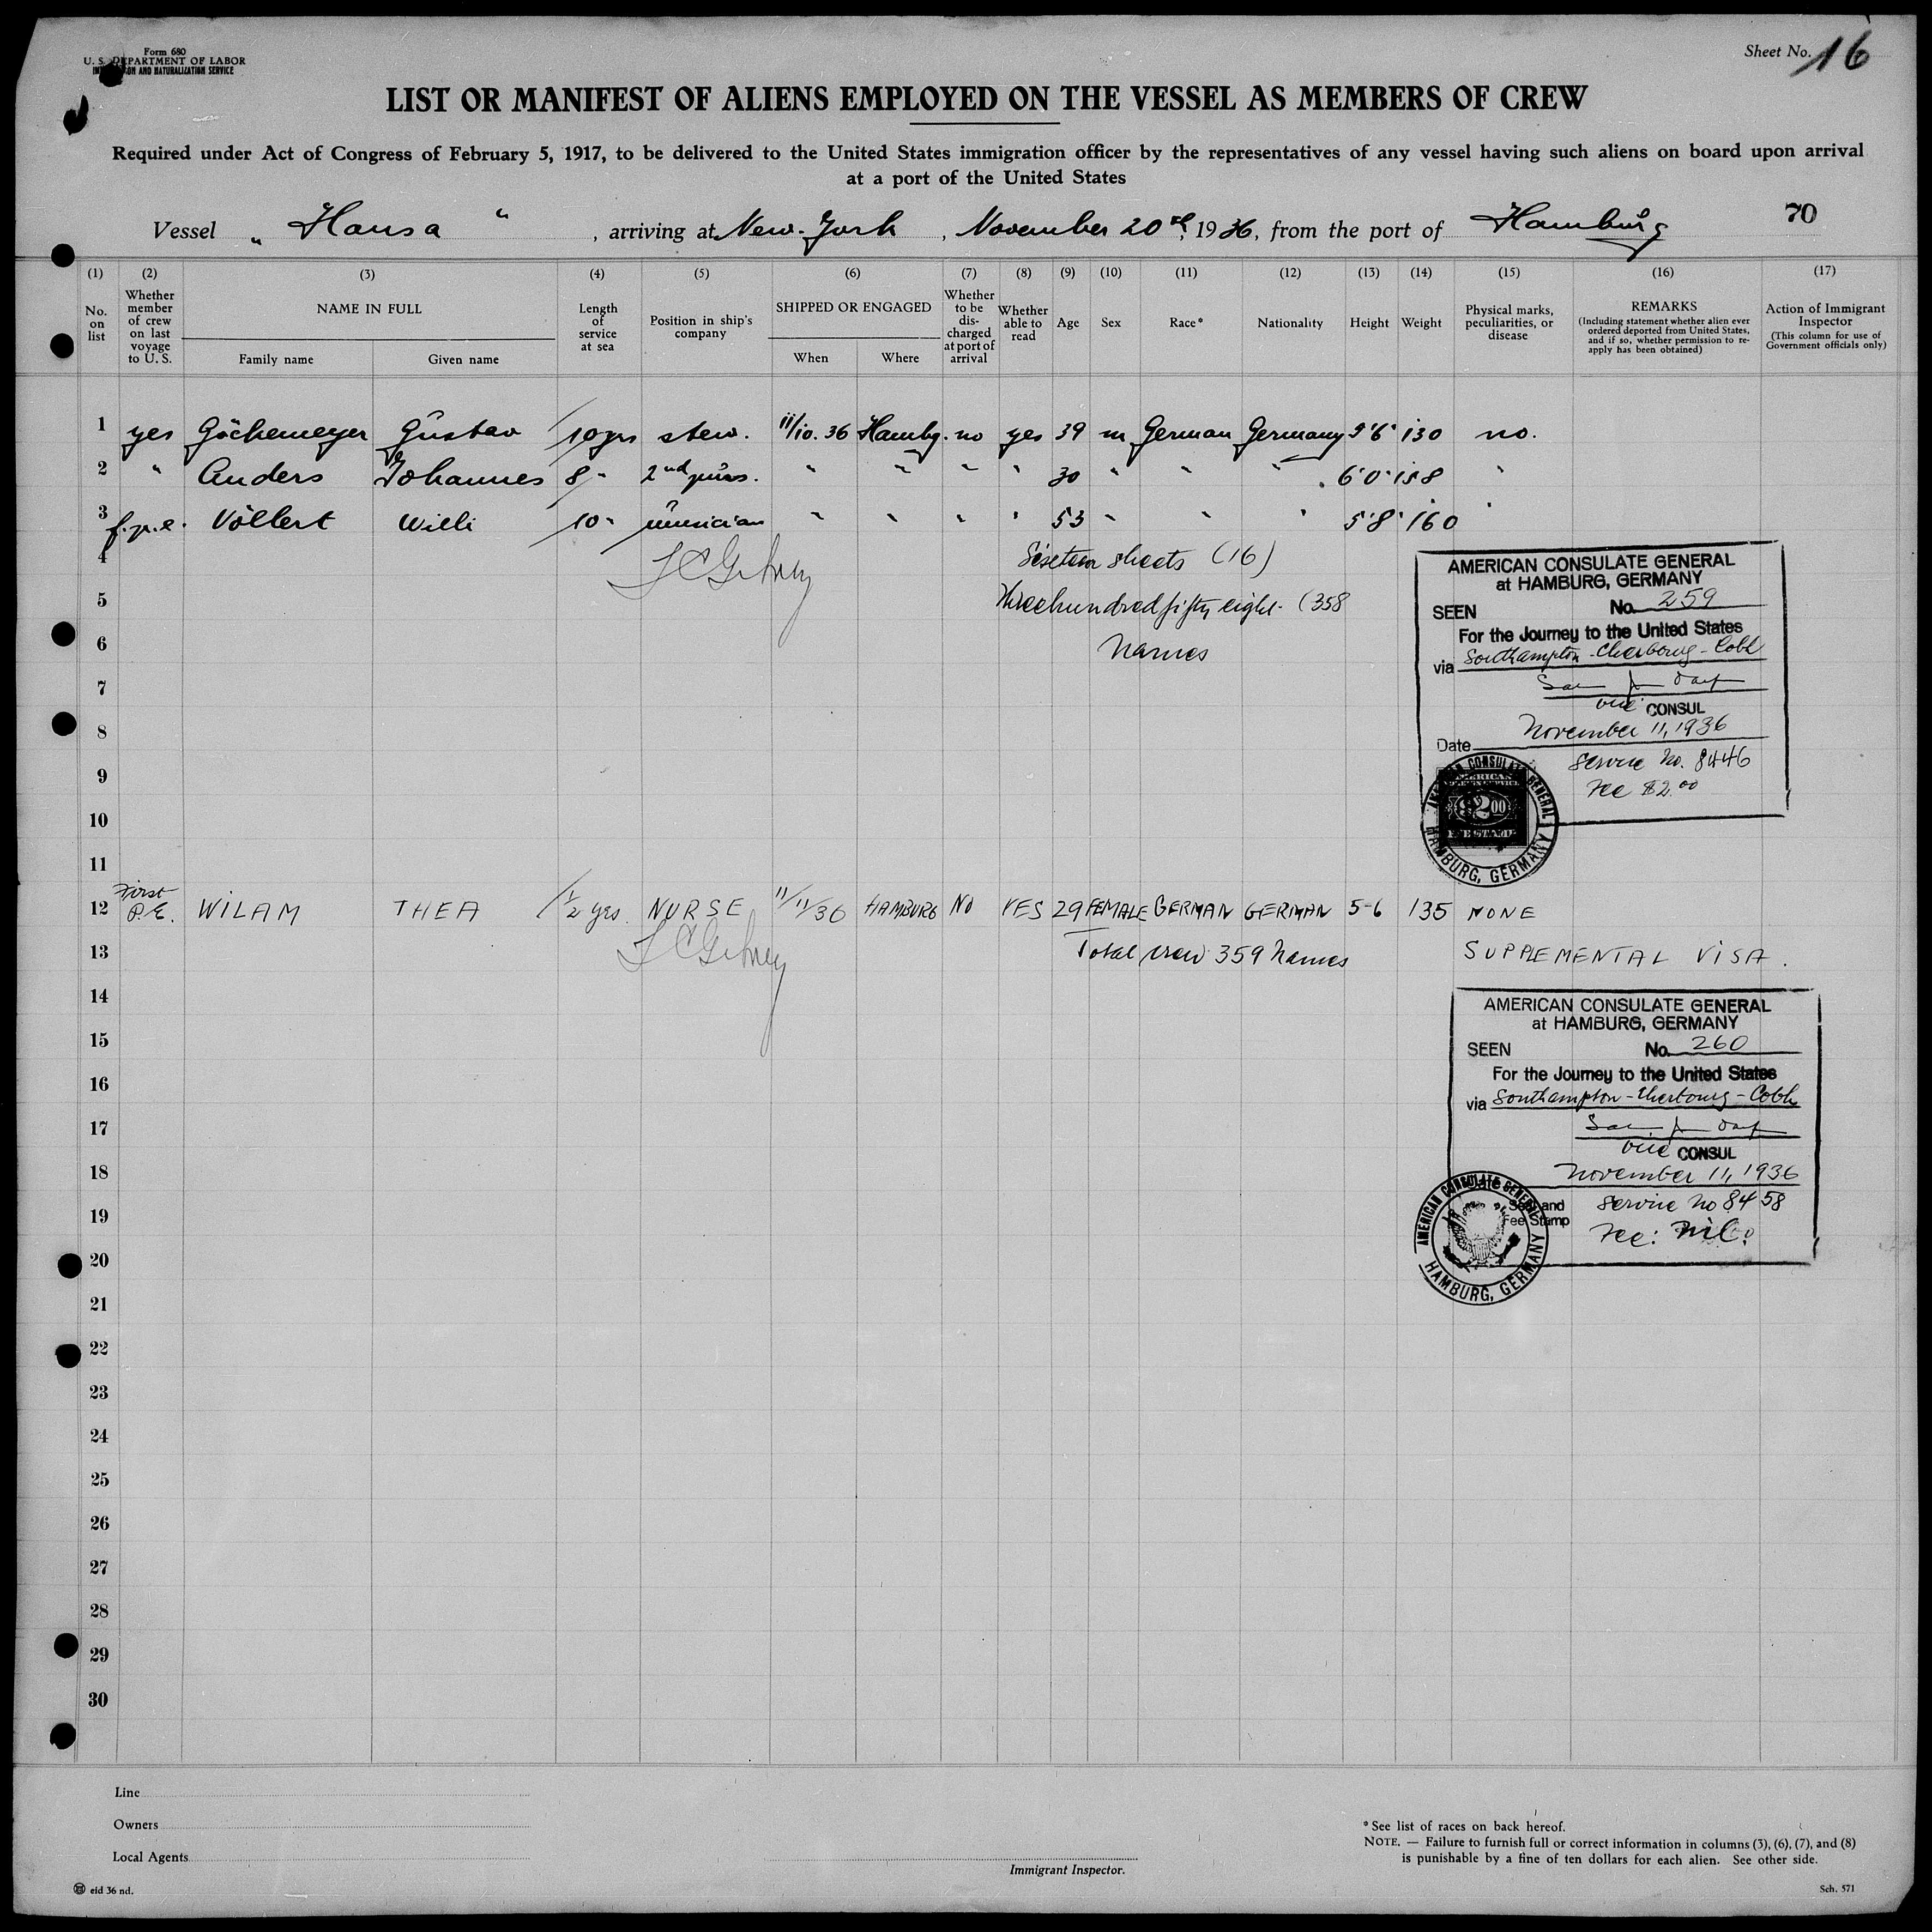 Form 680
U. S. DEPARTMENT OF LABOR
IMMIGRATION AND NATURALIZATION SERVICE
Sheet No. 16
LIST OR MANIFEST OF ALIENS EMPLOYED ON THE VESSEL AS MEMBERS OF CREW
Required under Act of Congress of February 5, 1917, to be delivered to the United States immigration officer by the representatives of any vessel having such aliens on board upon arrival
at a port of the United States
Vessel „ Hansa “, arriving at New-York, November 20th, 1936, from the port of Hamburg 70
(1) (2) (3) (4) (5) (6) (7) (8) (9) (10) (11) (12) (13) (14) (15) (16) (17)
No. on list
Whether member of crew on last voyage to U. S.
NAME IN FULL
Family name Given name
Length of service at sea
Position in ship's company
SHIPPED OR ENGAGED
When Where
Whether to be discharged at port of arrival
Whether able to read
Age
Sex
Race*
Nationality
Height
Weight
Physical marks, peculiarities, or disease
REMARKS
(Including statement whether alien ever ordered deported from United States, and if so, whether permission to re-apply has been obtained)
Action of Immigrant Inspector
(This column for use of Government officials only)
1 yes Göckemeyer Gustav 10 yrs stew. 11/10. 36 Hambg. no yes 39 m German Germany 5'6" 130 no.
2 " Anders Johannes 8 " 2nd purs. " " " " 30 " " " 6'0" 158 "
3 f.p.e. Völlert Willi 10 " musician " " " " 53 " " " 5'8" 160 "
4 Sixteen sheets (16)
5 Threehundredfifty eight- (358
6 Names
7
8
9
10
11
12 First P.E. WILAM THEA 1/2 yrs. NURSE 11/11/36 HAMBURG NO YES 29 FEMALE GERMAN GERMAN 5-6 135 NONE
13 Total crew 359 Names SUPPLEMENTAL VISA.
14
15
16
17
18
19
20
21
22
23
24
25
26
27
28
29
30
AMERICAN CONSULATE GENERAL
at HAMBURG, GERMANY
SEEN No. 259
For the Journey to the United States
via Southampton-Cherbourg-Cobh
vice CONSUL
Date November 11, 1936
Service No. 8446
Fee $2.00
AMERICAN CONSULATE GENERAL
HAMBURG, GERMANY
$2.00
FEE STAMP
AMERICAN CONSULATE GENERAL
at HAMBURG, GERMANY
SEEN No. 260
For the Journey to the United States
via Southampton-Cherbourg-Cobh
vice CONSUL
Date November 11, 1936
Seal and Fee Stamp
Service No 8458
Fee: nil.
AMERICAN CONSULATE GENERAL
HAMBURG, GERMANY
Line
Owners
Local Agents
Immigrant Inspector.
* See list of races on back hereof.
NOTE. — Failure to furnish full or correct information in columns (3), (6), (7), and (8)
is punishable by a fine of ten dollars for each alien. See other side.
eid 36 nd.
Sch. 571